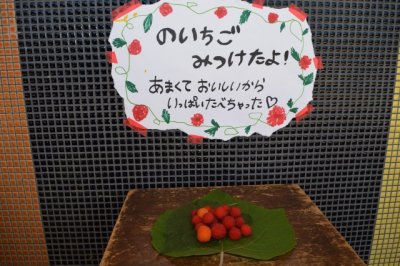 のいちご
みつけたよ！
あまくて おいしいから
いっぱいたべちゃった♡